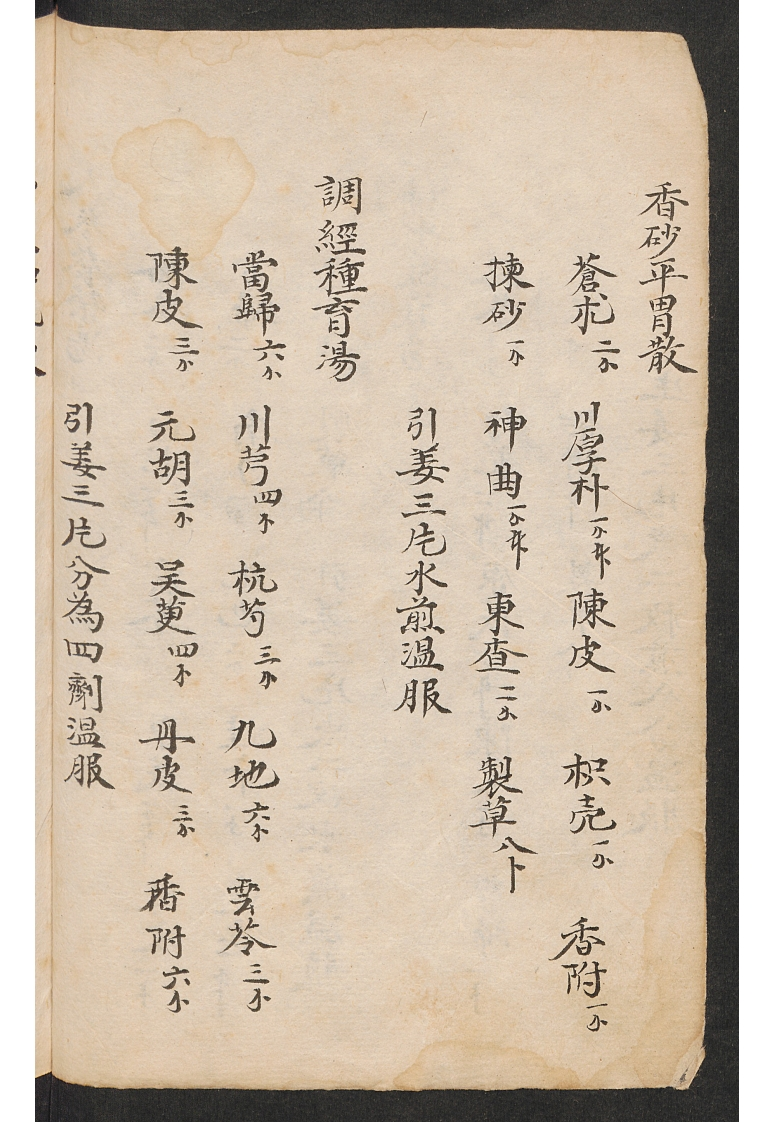 香砂平胃散
蒼朮二分 川厚朴一分半 陳皮一分 枳壳一分 香附一分
揀砂一分 神曲一分半 東查二分 製草八卜
引姜三片水煎温服
調經種育湯
當歸六分 川芎四分 杭芍三分 九地六分 雲苓三分
陳皮三分 元胡三分 吴萸四分 丹皮三分 香附六分
引姜三片分為四劑温服